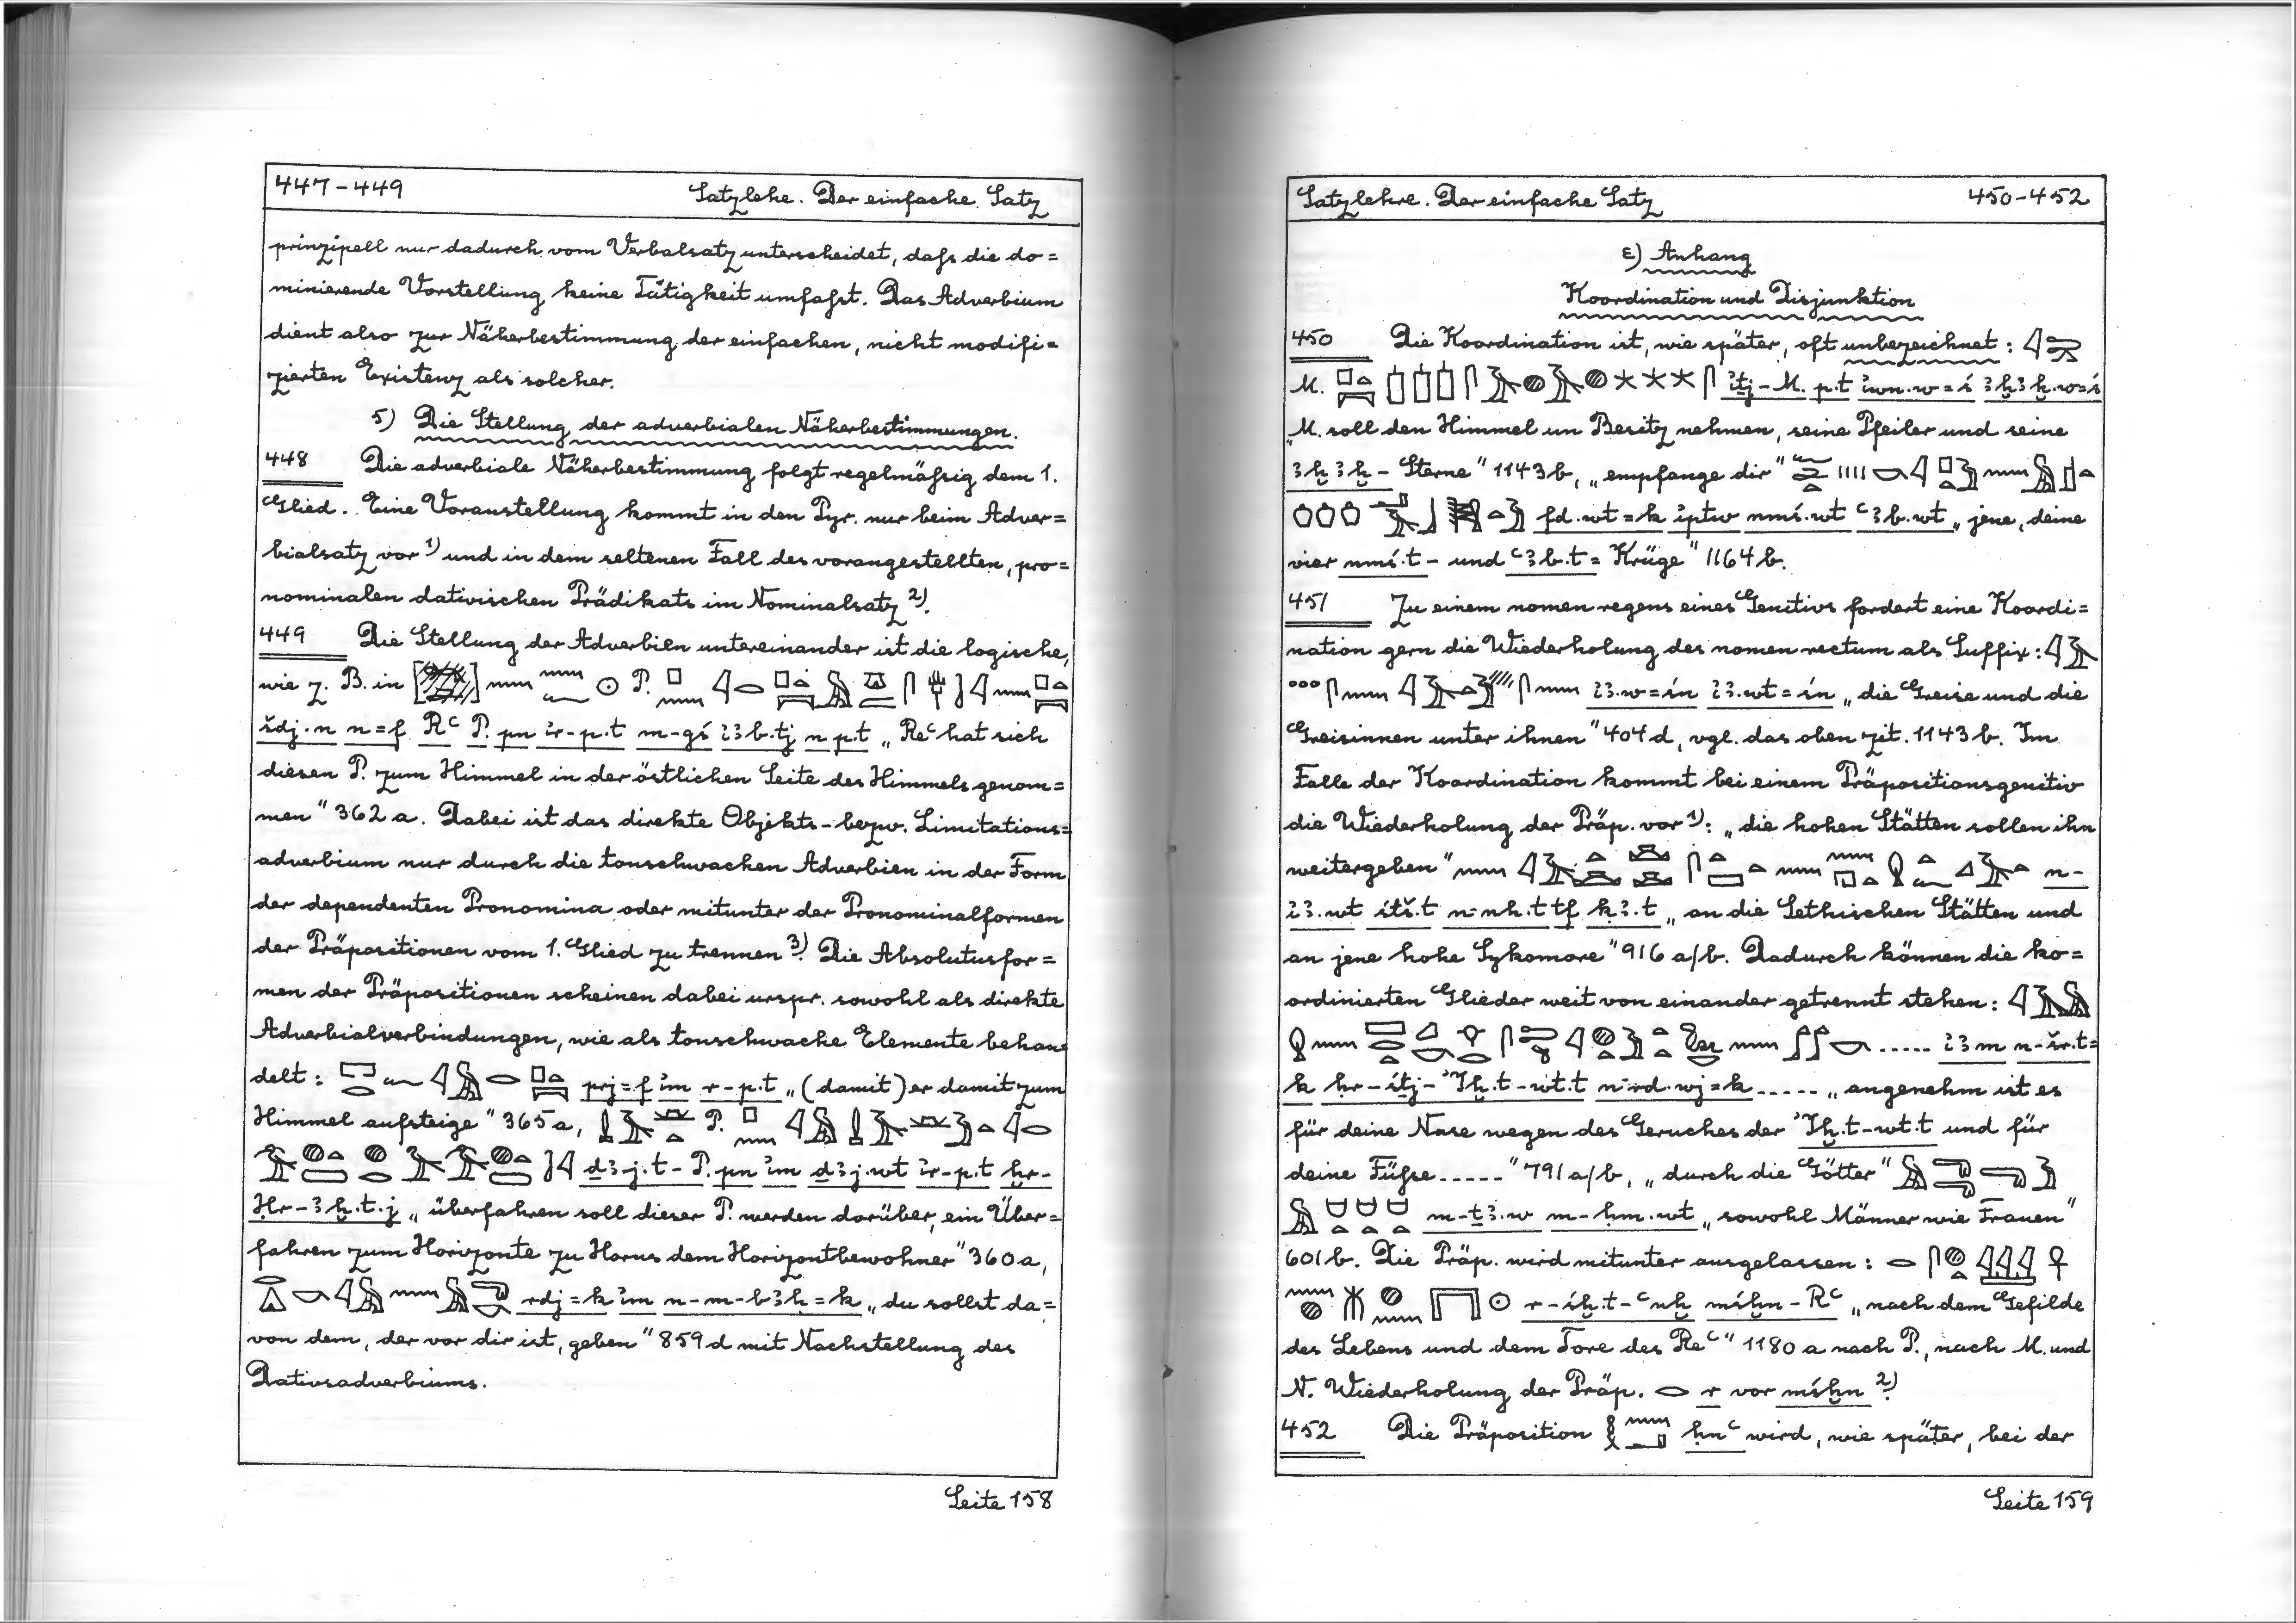 447-449 Satzlehe. Der einfache Satz
prinzipell nur dadurch vom Verbalsatz unterscheidet, daß die do=
minierende Vorstellung keine Tätigkeit umfaßt. Das Adverbium
dient also zur Näherbestimmung der einfachen, nicht modifi=
zierten Existenz als solcher.
5) Die Stellung der adverbialen Näherbestimmungen.
448 Die adverbiale Näherbestimmung folgt regelmäßig dem 1.
Glied. Eine Voranstellung kommt in den Pyr. nur beim Adver=
bialsatz vor 1) und in dem seltenen Fall des vorangestellten, pro=
nominalen dativischen Prädikats im Nominalsatz 2).
449 Die Stellung der Adverbien untereinander ist die logische,
wie z. B. in P.
šdj.n n=f Rꜥ P. pn ı͗r-p.t m-gś ı͗ꜣb.tj n p.t „Reꜥ hat sich
diesen P. zum Himmel in der östlichen Seite des Himmels genom=
men" 362 a. Dabei ist das direkte Objekts- bezw. Limitations=
adverbium nur durch die tonschwachen Adverbien in der Form
der dependenten Pronomina oder mitunter der Pronominalformen
der Präpositionen vom 1. Glied zu trennen 3). Die Absolutusfor=
men der Präpositionen scheinen dabei urspr. sowohl als direkte
Adverbialverbindungen, wie als tonschwache Elemente behan=
delt: prj=f ı͗m r-p.t „(damit) er damit zum
Himmel aufsteige" 365a, P.
ḏꜣj.t-P. pn ı͗m ḏꜣj.wt ı͗r-p.t ḫr-
Ḥr-ꜣḫ.t.j „überfahren soll dieser P. werden darüber, ein Über=
fahren zum Horizonte zu Horus dem Horizontbewohner" 360a,
rdj=k ı͗m n-m-bꜣḥ=k „du sollst da=
von dem, der vor dir ist, geben" 859d mit Nachstellung des
Dativsadverbiums.
Seite 158
Satzlehre. Der einfache Satz 450-452
ε) Anhang
Koordination und Disjunktion
450 Die Koordination ist, wie später, oft unbezeichnet:
M. ı͗ṯj-M. p.t ı͗wn.w=ś ꜣḫꜣḫ.w=ś
„M. soll den Himmel un Besitz nehmen, seine Pfeiler und seine
ꜣḫꜣḫ-Sterne" 1143b, „empfange dir"
fd.wt=k ı͗ptw nmś.wt ꜥꜣb.wt „jene, deine
vier nmś.t- und ꜥꜣb.t= Krüge" 1164b.
451 Zu einem nomen regens eines Genitivs fordert eine Koordi=
nation gern die Wiederholung des nomen rectum als Suffix:
ı͗ꜣ.w=śn ı͗ꜣ.wt=śn „die Greise und die
Greisinnen unter ihnen" 404d, vgl. das oben zit. 1143b. Im
Falle der Koordination kommt bei einem Präpositionsgenitiv
die Wiederholung der Präp. vor 1): „die hohen Stätten sollen ihn
weitergeben" n-
ı͗ꜣ.wt śtš.t n-nh.t tf kꜣ.t „an die Sethischen Stätten und
an jene hohe Sykomore" 916 a/b. Dadurch können die ko=
ordinierten Glieder weit von einander getrennt stehen:
..... ı͗ꜣm n-šr.t=
k ḥr-śṯj-ı͗ḫ.t-wt.t n-rd.wj=k ..... „angenehm ist es
für deine Nase wegen des Geruches der ı͗ḫ.t-wt.t und für
deine Füße ....." 791 a/b, „durch die Götter"
m-ṯꜣ.w m-ḥm.wt „sowohl Männer wie Frauen"
601b. Die Präp. wird mitunter ausgelassen:
r-śḫ.t-ꜥnḫ mśḫn-Rꜥ „nach dem Gefilde
des Lebens und dem Tore des Reꜥ" 1180 a nach P., nach M. und
N. Wiederholung der Präp. r vor mśḫn 2)
452 Die Präposition ḥnꜥ wird, wie später, bei der
Seite 159